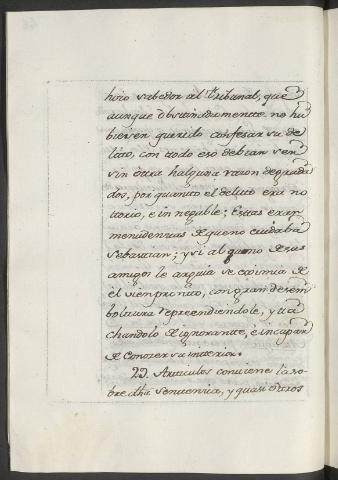 hizo sabedor al tribunal, que
aunque obstinadamentte no hu
biesen querido confesar su de
litto, con ttodo eso debian ser
sin ottra halguna razon degrada
dos, por quantto el delitto era no
ttorio, e in negable; Esttas eran
menudencias de que no cuidaba
Sebasttian; y si alguno de sus
amigos le arguia se eximia de
el sien prontto, con gran desem
bolttura reprendiendole, y tta
chandolo de ignorantte, e incapaz
de Conozer su intterior.
29. Articulos conttiene la so
bre dha Senttencia, y quasi ottros